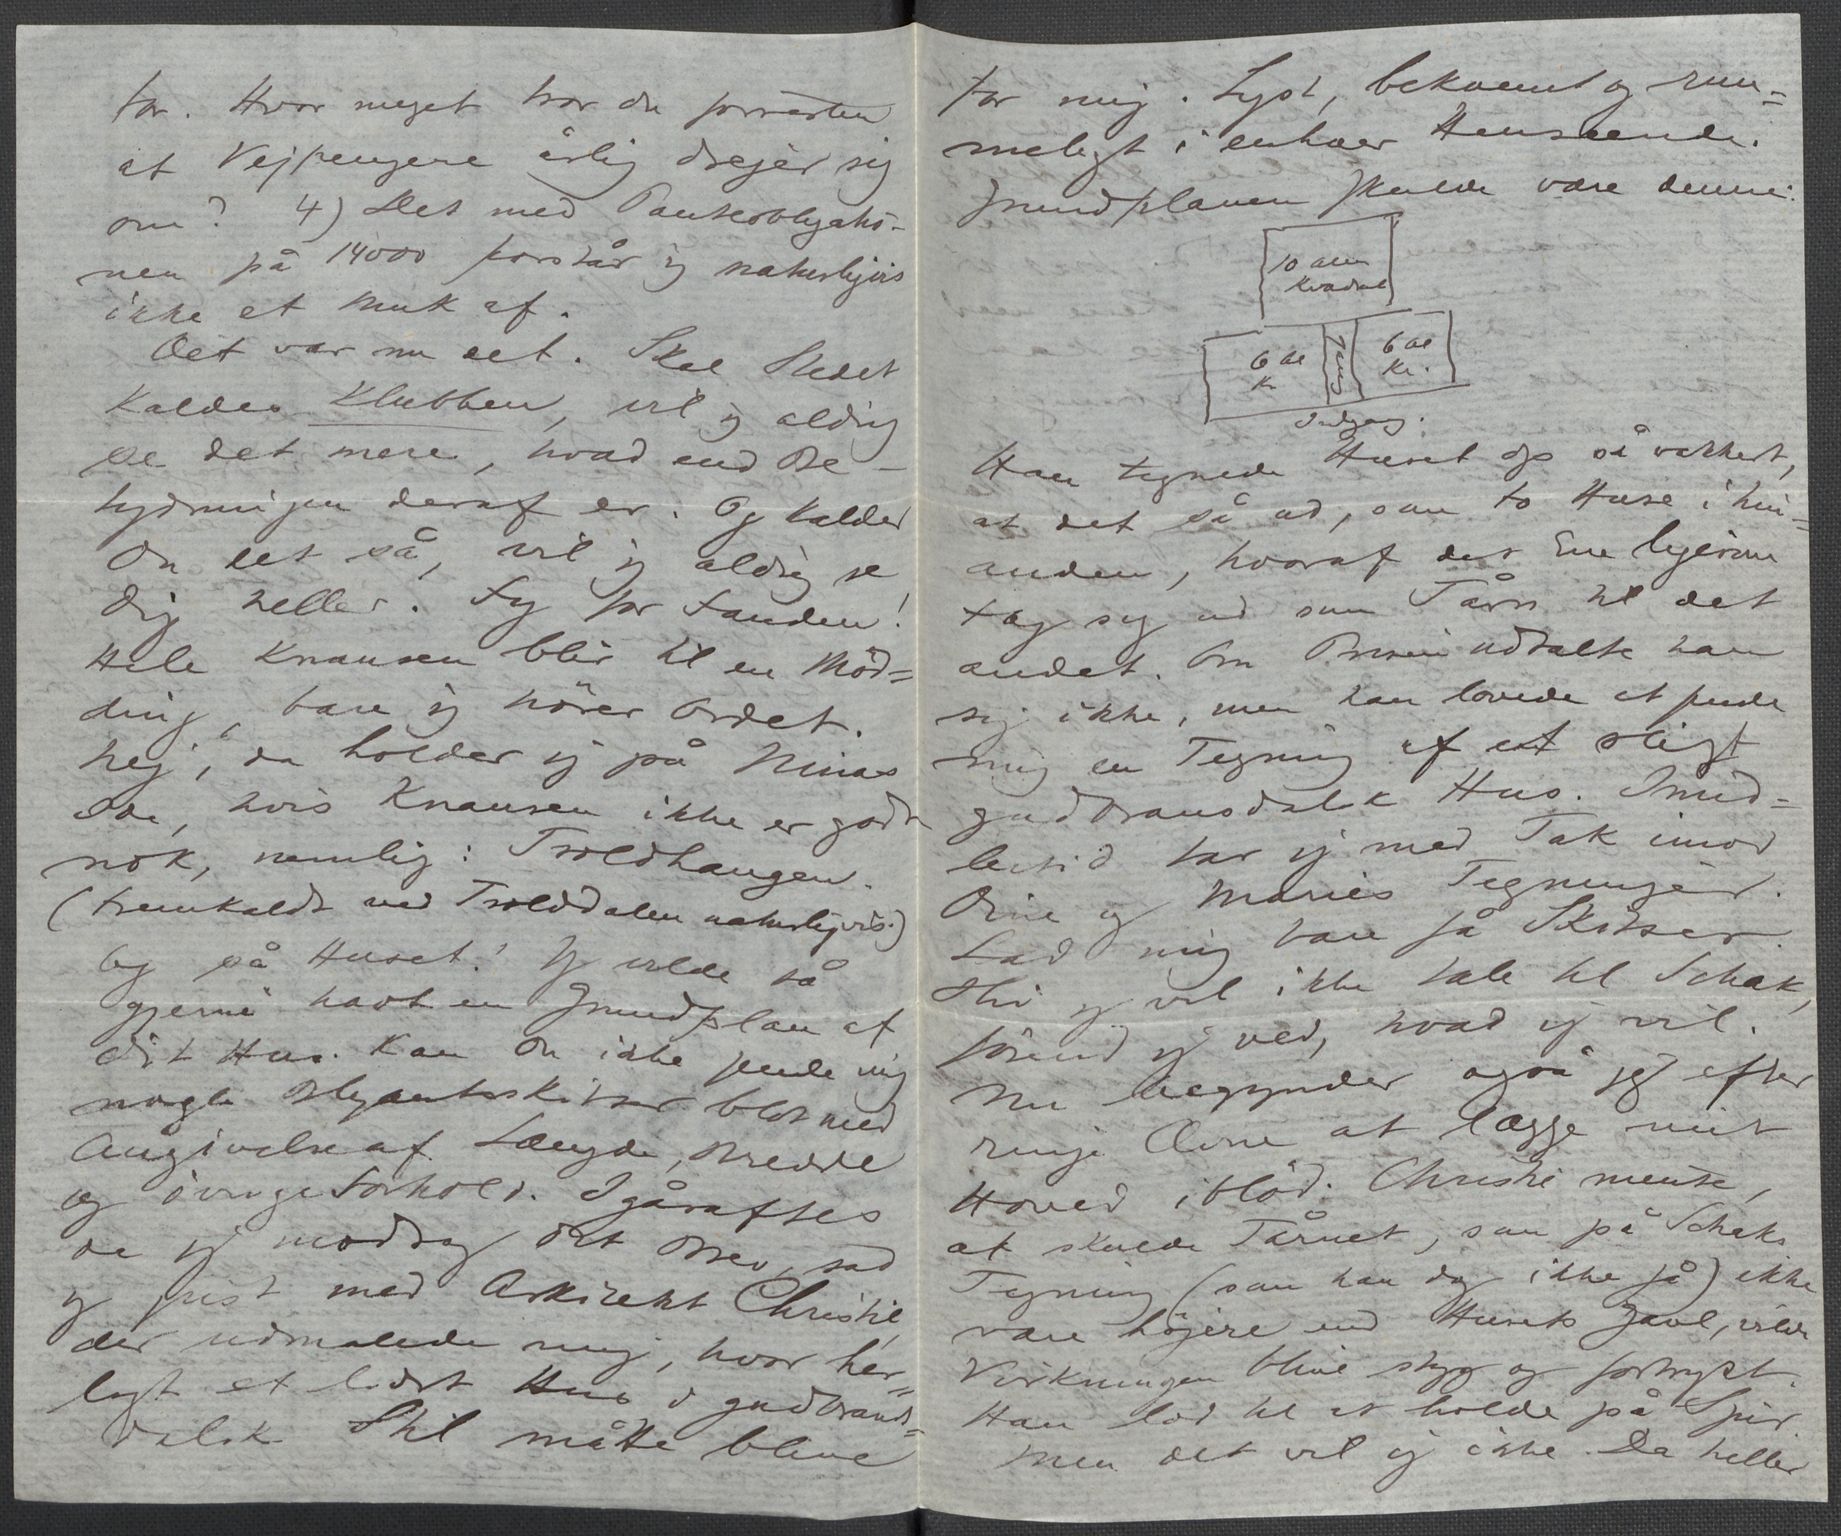 for. Hvor meget tror du forresten
at Vejpengene årlig drejer sig
om? 4) Det med Panteobligatio-
nen på 14000 forstår jeg naturligvis
ikke et Muk af.
Det var nu det. Skal Stedet
kaldes Klubben, vil jeg aldrig
se det mere, hvad end Be-
tydningen deraf er. Og kalder
Du det så, vil jeg aldrig se
Dig heller. Fy for Fanden!
Hele Knausen blir til en Mød=
ding, bare jeg hører Ordet.
Nej, da holder jeg på Ninas
Ide, hvis Knausen ikke er godt
nok, nemlig: Troldhaugen.
(fremkaldt ved Trolddalen naturligvis.)
Og så Huset! Jeg vilde så
gjerne havt en Grundplan af
Dit Hus. Kan Du ikke sende mig
nogle Blyantsskitser blot med
Angivelse af Længde, Bredde
og øvrige Forhold. Igåraftes
da jeg modtog Dit Brev, sad
jeg just med Arkitekt Christie,
der udmalede mig, hvor her=
ligt et lidet Hus i gudbrands=
dalsk Stil måtte blive
for mig. Lyst, bekvemt og rum=
meligt i enhver Henseende.
Grundplanen skulde være denne:
10 alen
Kvadrat
6 al
Kv.
Gang
6 al
Kv.
Indgang.
Han tegnede Huset op så vakkert,
at det så ud, som to Huse i hin=
anden, hvoraf det Ene ligesom
tog sig ud som Tårn til det
andet. Om Prisen udtalte han
sig ikke, men han lovede at sende
mig en Tegning af et sligt
gudbransdalsk Hus. Imid=
lertid tar jeg med Tak imod
Dine og Maries Tegninger.
Lad mig bare få Skitser.
Thi jeg vil ikke tale til Schak,
førend jeg ved, hvad jeg vil.
Nu begynder også jeg efter
ringe Evne at lægge mit
Hoved iblød. Christie mente,
at skulde Tårnet, som på Schaks
Tegning (som han dog ikke så) ikke
være højere end Husets Gavl, vilde
Virkningen blive styg og fortrykt.
Han lod til at holde på Spir.
Men det vil jeg ikke. Da heller